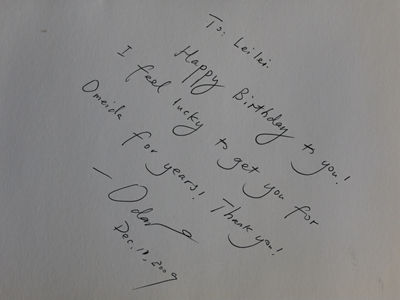 To: Leilei.
Happy Birthday to you!
I feel lucky to get you for
Omeida for years! Thank you!
Dec. 19, 2009